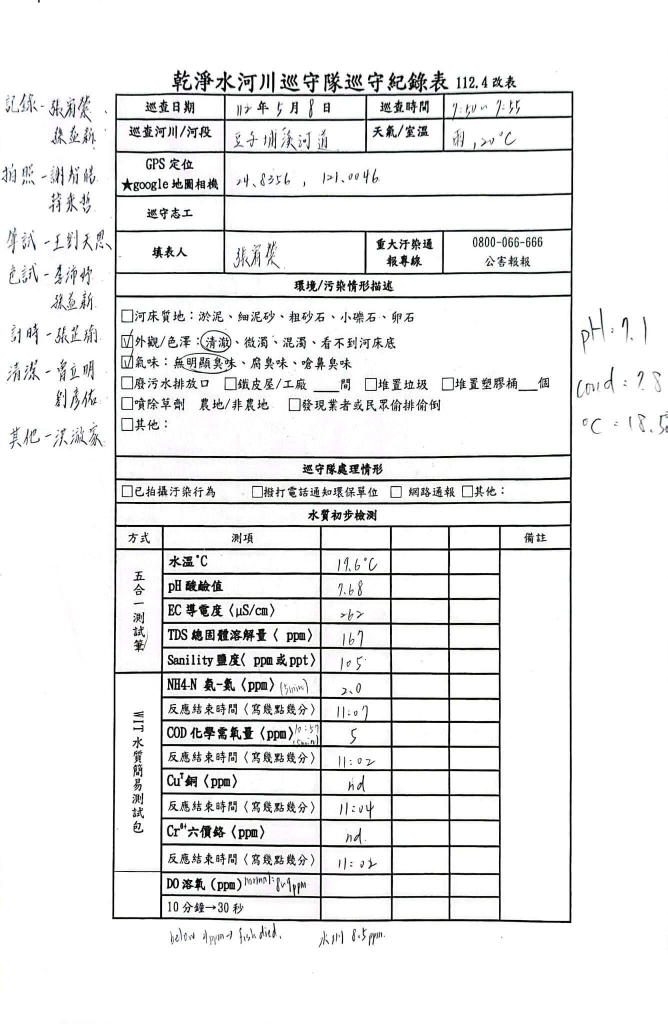 乾淨水河川巡守隊巡守紀錄表 112.4 改表
巡查日期 112 年 5 月 8 日 巡查時間 7:50 ~ 7:55
巡查河川/河段 豆子埔溪河道 天氣/室溫 雨, 20°C
GPS 定位
★google 地圖相機 24.8356, 121.0046
巡守志工
填表人 重大汙染通報專線 0800-066-666 公害報報
環境/污染情形描述
□河床質地：淤泥、細泥砂、粗砂石、小礫石、卵石
☑外觀/色澤：清澈、微濁、混濁、看不到河床底
☑氣味：無明顯臭味、腐臭味、嗆鼻臭味
□廢污水排放口 □鐵皮屋/工廠 ___間 □堆置垃圾 □堆置塑膠桶__個
□噴除草劑 農地/非農地 □發現業者或民眾偷排偷倒
□其他：
巡守隊處理情形
□已拍攝汙染行為 □撥打電話通知環保單位 □ 網路通報 □其他：
水質初步檢測
方式 測項 備註
五合一測試筆
水溫°C 19.6°C
pH 酸鹼值 7.68
EC 導電度〈μS/cm〉 262
TDS 總固體溶解量〈 ppm〉 167
Sanility 鹽度〈 ppm或ppt〉 105
WIT水質簡易測試包
NH4-N 氨-氮〈ppm〉(5min) 2.0
反應結束時間〈寫幾點幾分〉 11:07
COD 化學需氧量〈ppm〉10:57 (5min) 5
反應結束時間〈寫幾點幾分〉 11:02
Cu⁺銅〈ppm〉 nd
反應結束時間〈寫幾點幾分〉 11:04
Cr⁶⁺六價鉻〈ppm〉 nd.
反應結束時間〈寫幾點幾分〉 11:02
DO 溶氧 (ppm) normal: 8~9ppm
10 分鐘→30 秒
below 4ppm → fish died. 8.5 ppm.
記錄-
拍照-
筆試-王劉天恩
色試-
計時-
清潔-曾立明
劉彥佑
其他-
pH: 7.1
cond: 78
°C: 18.5